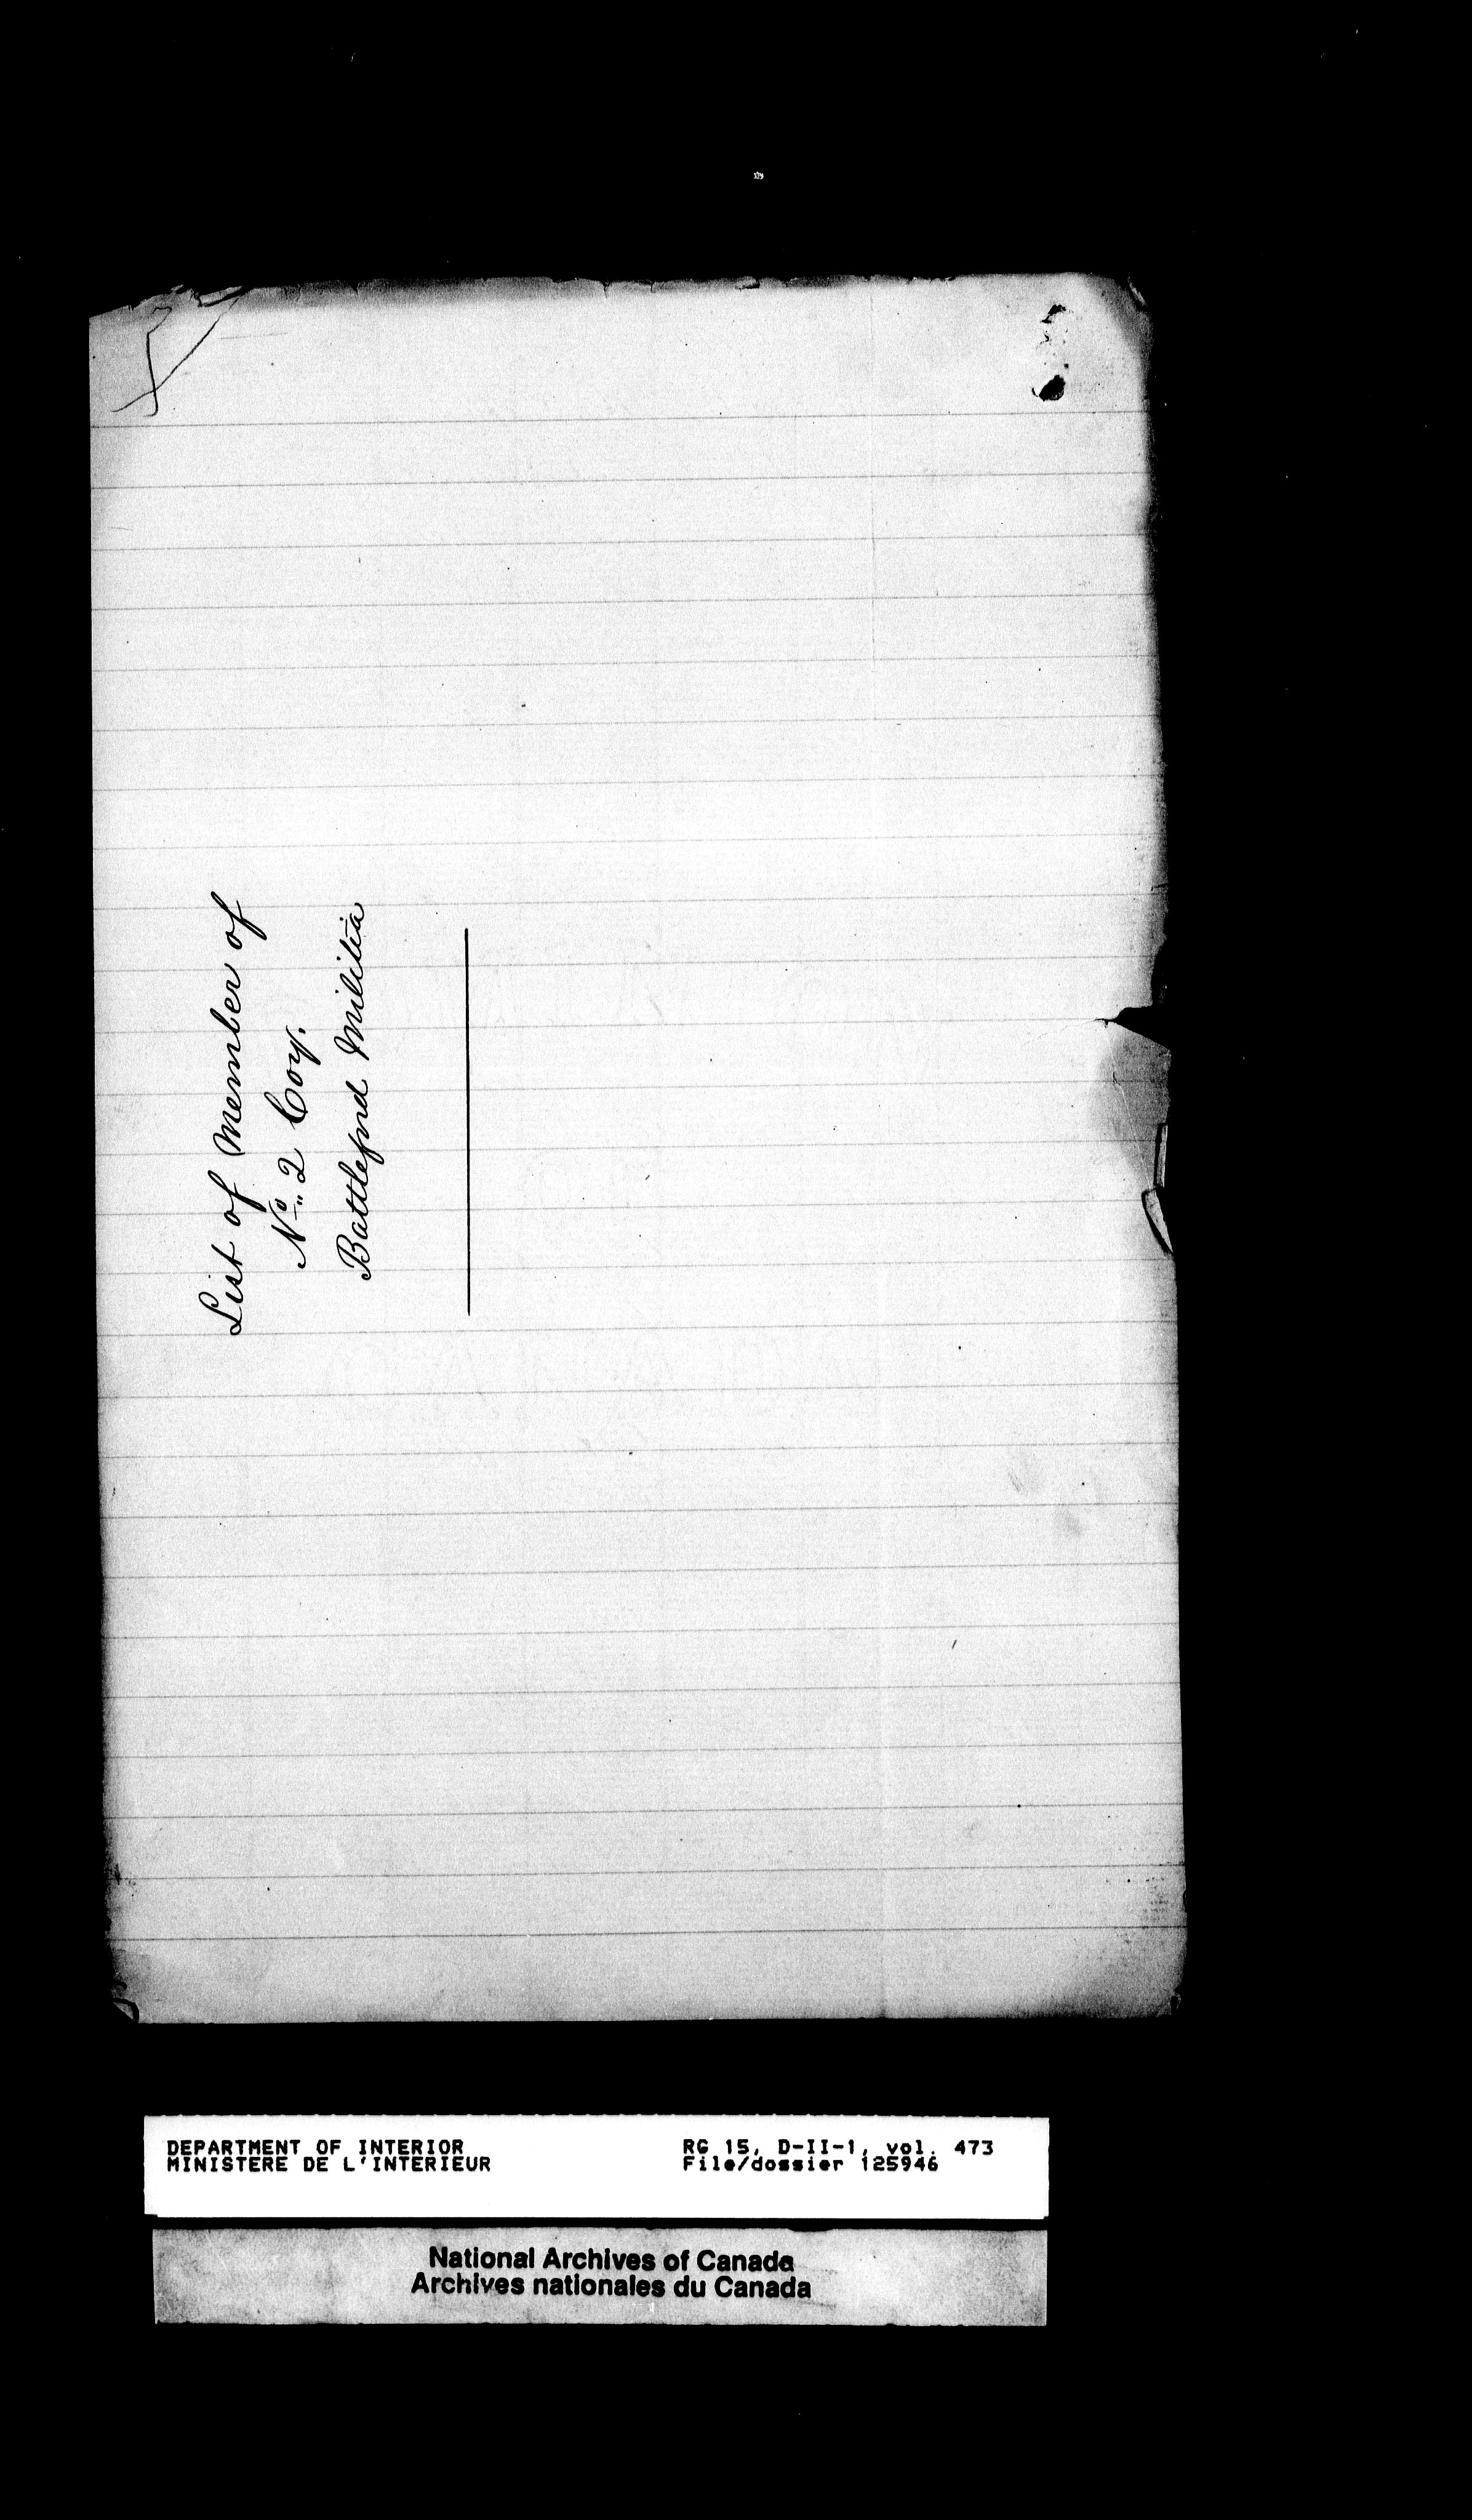 List of Member of
No. 2 Coy.
Battleford Militia
DEPARTMENT OF INTERIOR
MINISTERE DE L'INTERIEUR
RG 15, D-II-1, vol. 473
File/dossier 125946
National Archives of Canada
Archives nationales du Canada